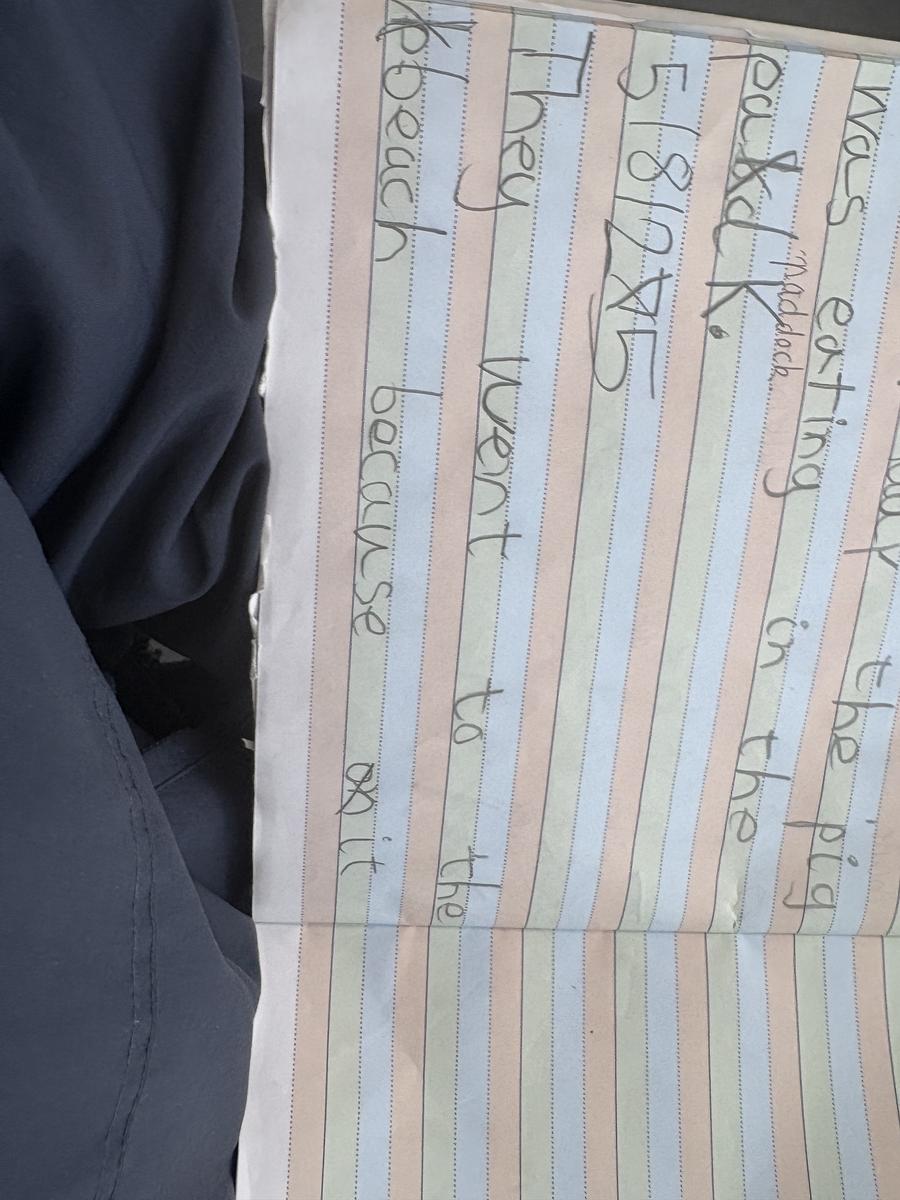 the pig
was eating in the
"paddock
padd k.
5/8/25
They went to the
beach because it